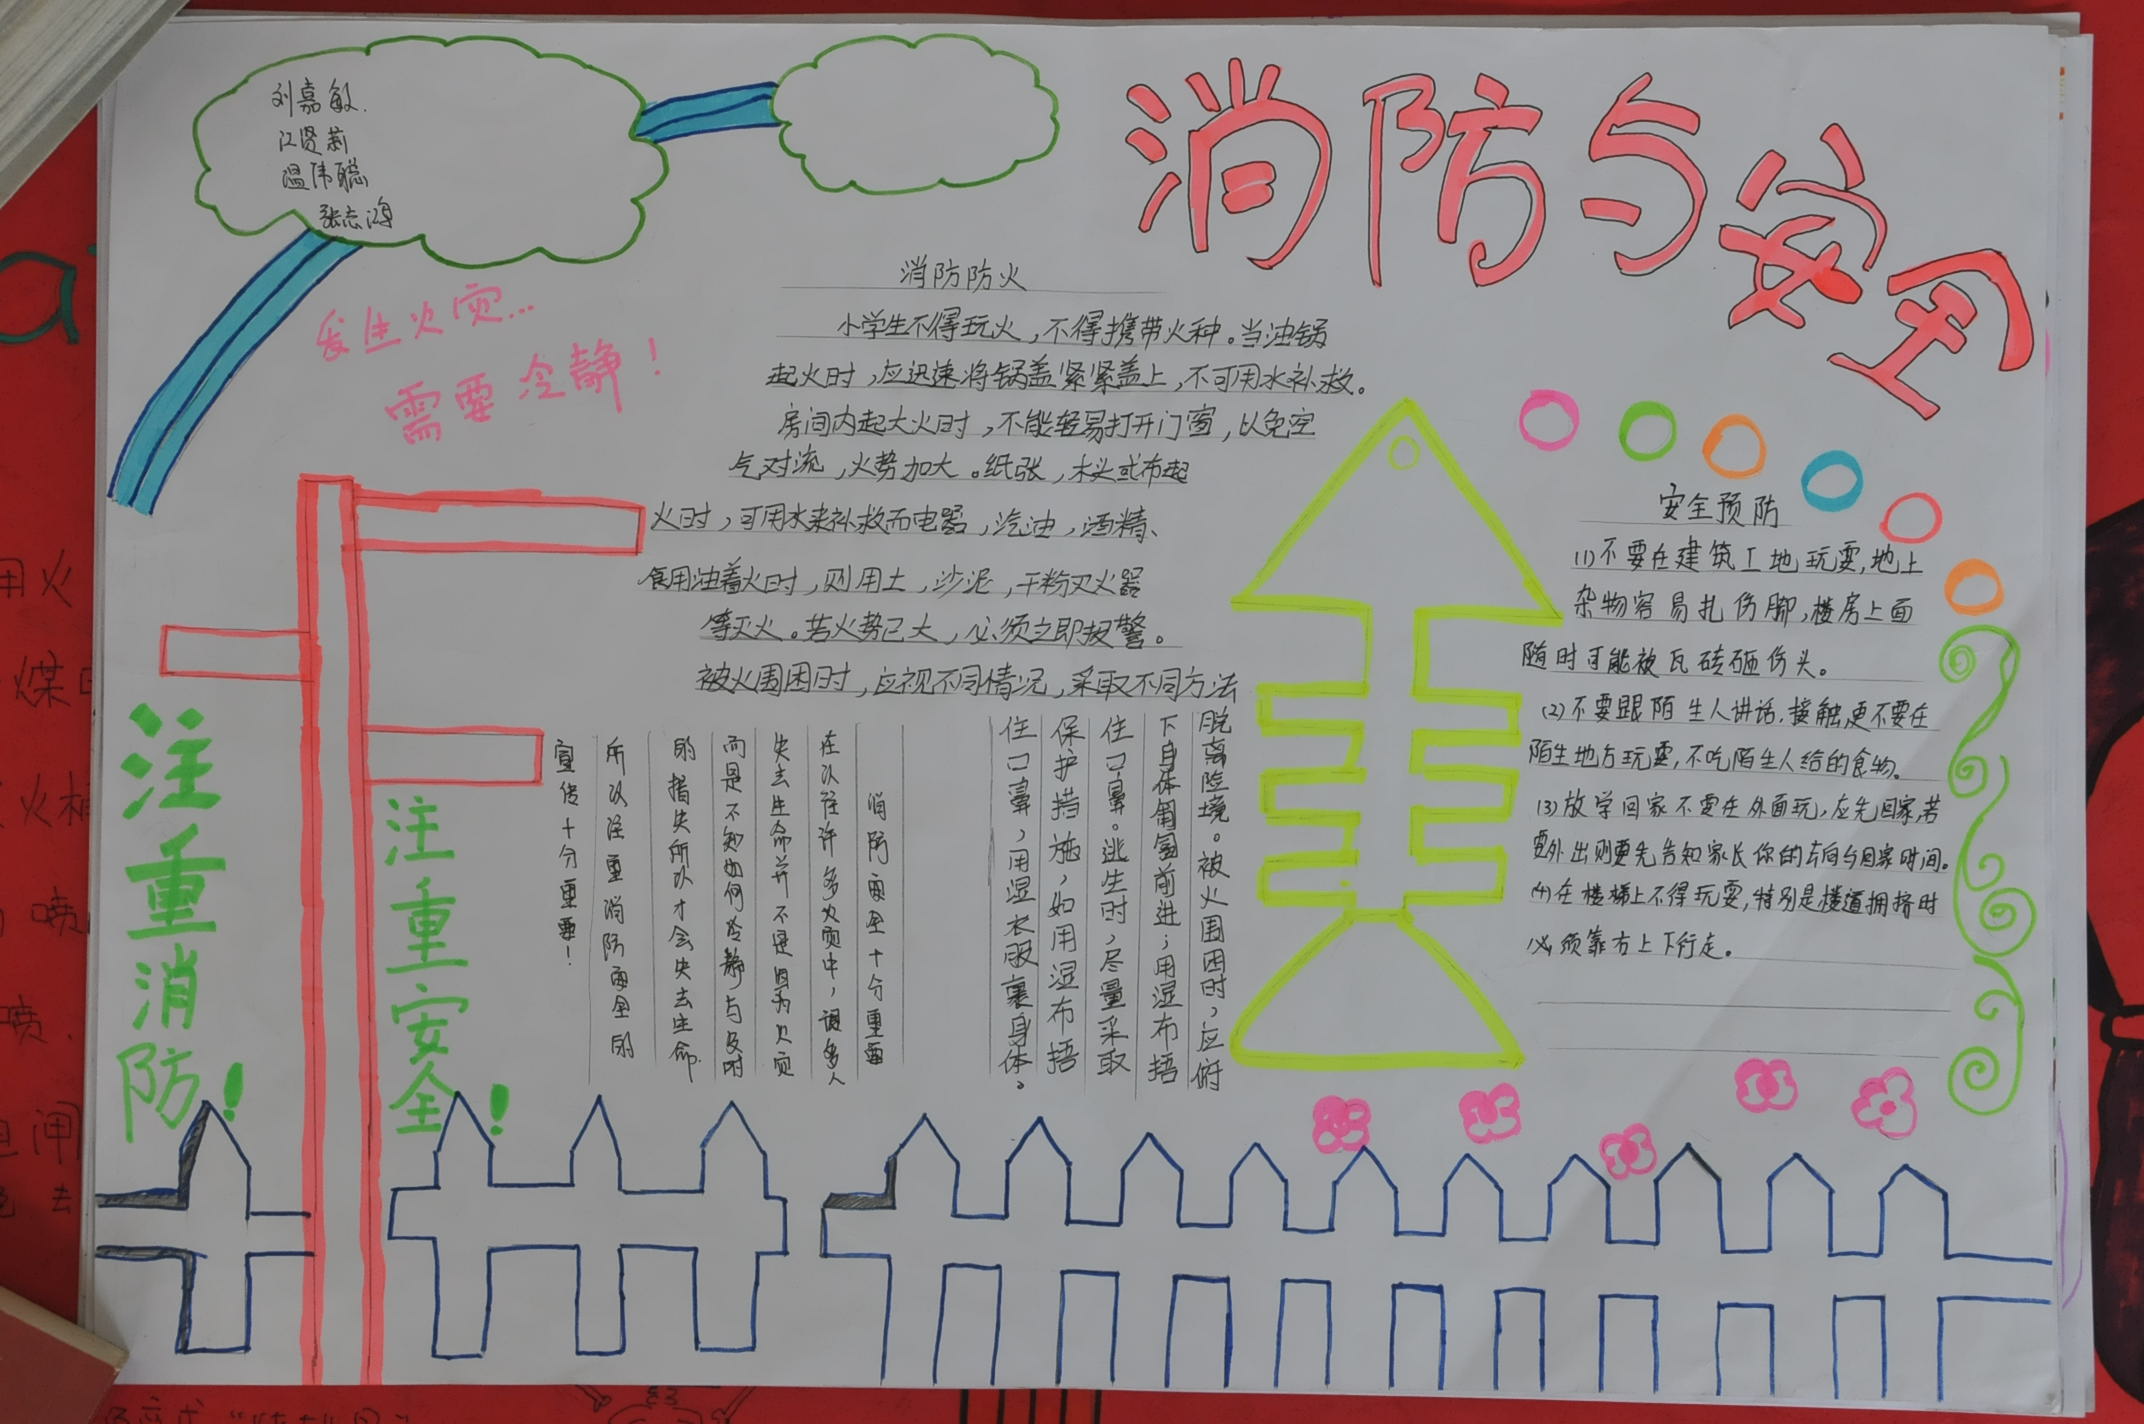 消防与安全
刘嘉敏.
江贤莉
温伟聪
张志鸿
发生火灾...
需要冷静!
消防防火
小学生不得玩火,不得携带火种。当油锅
起火时,应迅速将锅盖紧紧盖上,不可用水补救。
房间内起大火时,不能轻易打开门窗,以免空
气对流,火势加大。纸张,木头或布起
火时,可用水来补救而电器,汽油,酒精、
食用油着火时,则用土,沙泥,干粉灭火器
等灭火。若火势已大,必须立即报警。
被火围困时,应视不同情况,采取不同方法
脱离险境。被火围困时,应俯
下身体匍匐前进;用湿布捂
住口鼻。逃生时,尽量采取
保护措施,如用湿布捂
住口鼻,用湿衣服裹身体。
消防安全十分重要
在以往许多火灾中,误多人
失去生命并不是因为火灾
而是不知如何冷静与及时
的指失所以才会失去生命.
所以注重消防安全的
宣传十分重要!
注重消防!
注重安全!
安全预防
(1)不要在建筑工地玩耍,地上
杂物容易扎伤脚,楼房上面
随时可能被瓦砖砸伤头。
(2)不要跟陌生人讲话,接触,更不要在
陌生地方玩耍,不吃陌生人给的食物。
(3)放学回家不要在外面玩,应先回家,若
要外出则要先告知家长你的去向与回家时间。
(4)在楼梯上不得玩耍,特别是楼道拥挤时
必须靠右上下行走。